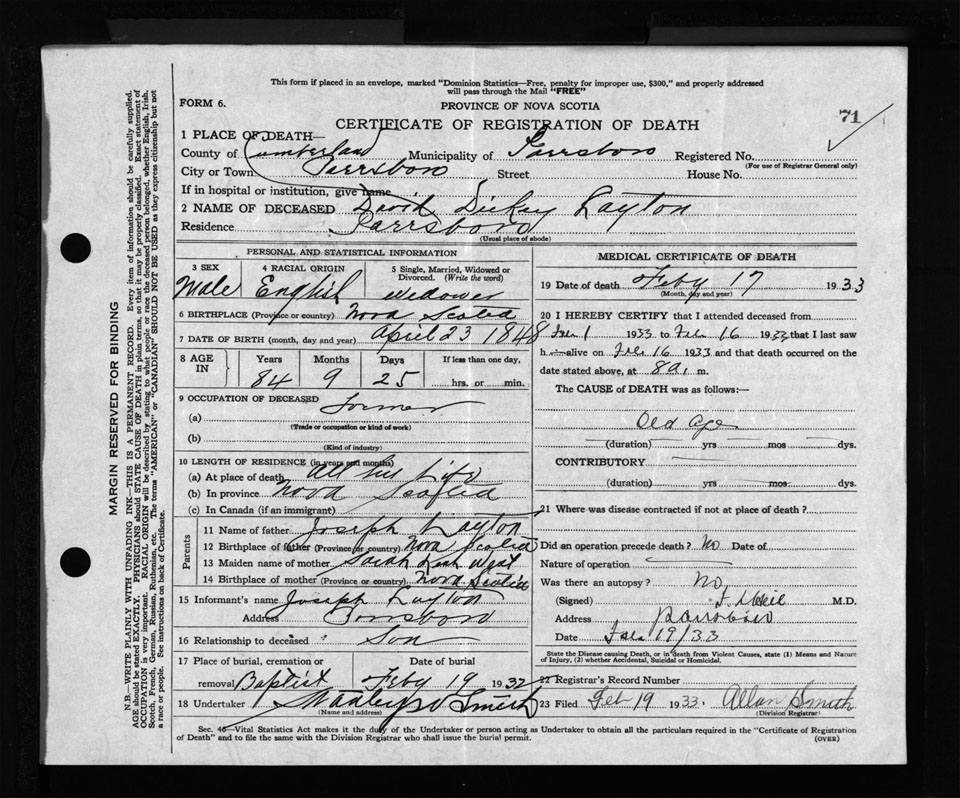 This form if placed in an envelope, marked "Dominion Statistics—Free, penalty for improper use, $300," and properly addressed
will pass through the Mail "FREE"
FORM 6.
PROVINCE OF NOVA SCOTIA
71
CERTIFICATE OF REGISTRATION OF DEATH
1 PLACE OF DEATH—
County of Cumberland Municipality of Parrsboro Registered No.
(For use of Registrar General only)
City or Town Parrsboro Street House No.
If in hospital or institution, give name
2 NAME OF DECEASED David Dickey Layton
Residence Parrsboro
(Usual place of abode)
PERSONAL AND STATISTICAL INFORMATION
3 SEX 4 RACIAL ORIGIN 5 Single, Married, Widowed or
Divorced. (Write the word)
Male English Widower
6 BIRTHPLACE (Province or country) Nova Scotia
7 DATE OF BIRTH (month, day and year) April 23 1848
8 AGE IN Years Months Days If less than one day,
84 9 25 hrs. or min.
9 OCCUPATION OF DECEASED
(a) Farmer
(Trade or occupation or kind of work)
(b)
(Kind of industry)
10 LENGTH OF RESIDENCE (in years and months)
(a) At place of death All his Life
(b) In province Nova Scotia
(c) In Canada (if an immigrant)
Parents
11 Name of father Joseph Layton
12 Birthplace of father (Province or country) Nova Scotia
13 Maiden name of mother Sarah
14 Birthplace of mother (Province or country) Nova Scotia
15 Informant's name Joseph Layton
Address Parrsboro
16 Relationship to deceased Son
17 Place of burial, cremation or Date of burial
removal Baptist Feby 19 1932
18 Undertaker Smith
(Name and address)
MEDICAL CERTIFICATE OF DEATH
19 Date of death Feby 17 1933
(Month, day and year)
20 I HEREBY CERTIFY that I attended deceased from
1 1933 to Feb 16 1933 that I last saw
h alive on Feb 16 1933 and that death occurred on the
date stated above, at 8 a. m.
The CAUSE OF DEATH was as follows:—
Old age
(duration) yrs mos dys.
CONTRIBUTORY
(duration) yrs mos dys.
21 Where was disease contracted if not at place of death?
Did an operation precede death? No Date of
Nature of operation
Was there an autopsy? No
(Signed) M.D.
Address Parrsboro
Date Feb 19/33
State the Disease causing Death, or in death from Violent Causes, state (1) Means and Nature
of Injury, (2) whether Accidental, Suicidal or Homicidal.
22 Registrar's Record Number
23 Filed Feb 19 1933. Allan Smith
(Division Registrar)
Sec. 46—Vital Statistics Act makes it the duty of the Undertaker or person acting as Undertaker to obtain all the particulars required in the "Certificate of Registration
of Death" and to file the same with the Division Registrar who shall issue the burial permit.
(OVER)
MARGIN RESERVED FOR BINDING
N.B.—WRITE PLAINLY WITH UNFADING INK—THIS IS A PERMANENT RECORD. Every item of information should be carefully supplied.
AGE should be stated EXACTLY. PHYSICIANS should STATE CAUSE OF DEATH in plain terms, so that it may be properly classified. Exact statement of
OCCUPATION is very important. RACIAL ORIGIN will be described by stating to what people or race the deceased person belonged, whether English, Irish,
Scotch, French, German, Russian, Ruthenian, etc. The terms "AMERICAN" or "CANADIAN" SHOULD NOT BE USED as they express citizenship but not
a race or people. See instructions on back of Certificate.